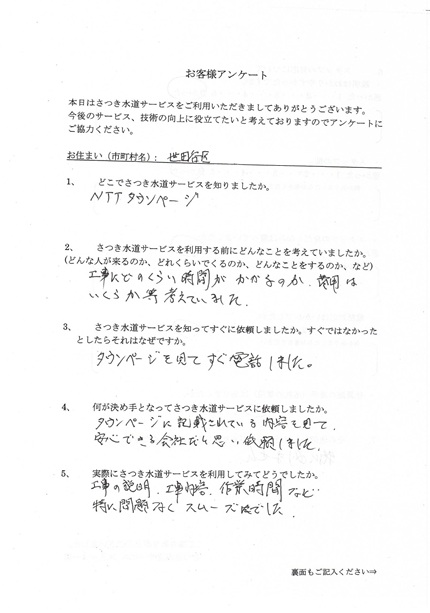 お客様アンケート
本日はさつき水道サービスをご利用いただきましてありがとうございます。
今後のサービス、技術の向上に役立てたいと考えておりますのでアンケートに
ご協力ください。
お住まい（市町村名）： 世田谷区
1、 どこでさつき水道サービスを知りましたか。
NTTタウンページ
2、 さつき水道サービスを利用する前にどんなことを考えていましたか。
(どんな人が来るのか、どれくらいでくるのか、どんなことをするのか、など)
工事にどのくらい時間がかかるのか、費用は
いくらか等考えていました。
3、 さつき水道サービスを知ってすぐに依頼しましたか。すぐではなかった
としたらそれはなぜですか。
タウンページを見てすぐ電話しました。
4、 何が決め手となってさつき水道サービスに依頼しましたか。
タウンページに記載されている内容を見て、
安心できる会社だと思い依頼しました。
5、 実際にさつき水道サービスを利用してみてどうでしたか。
工事の説明、工事内容、作業時間など
特に問題なくスムーズでした。
裏面もご記入ください⇒